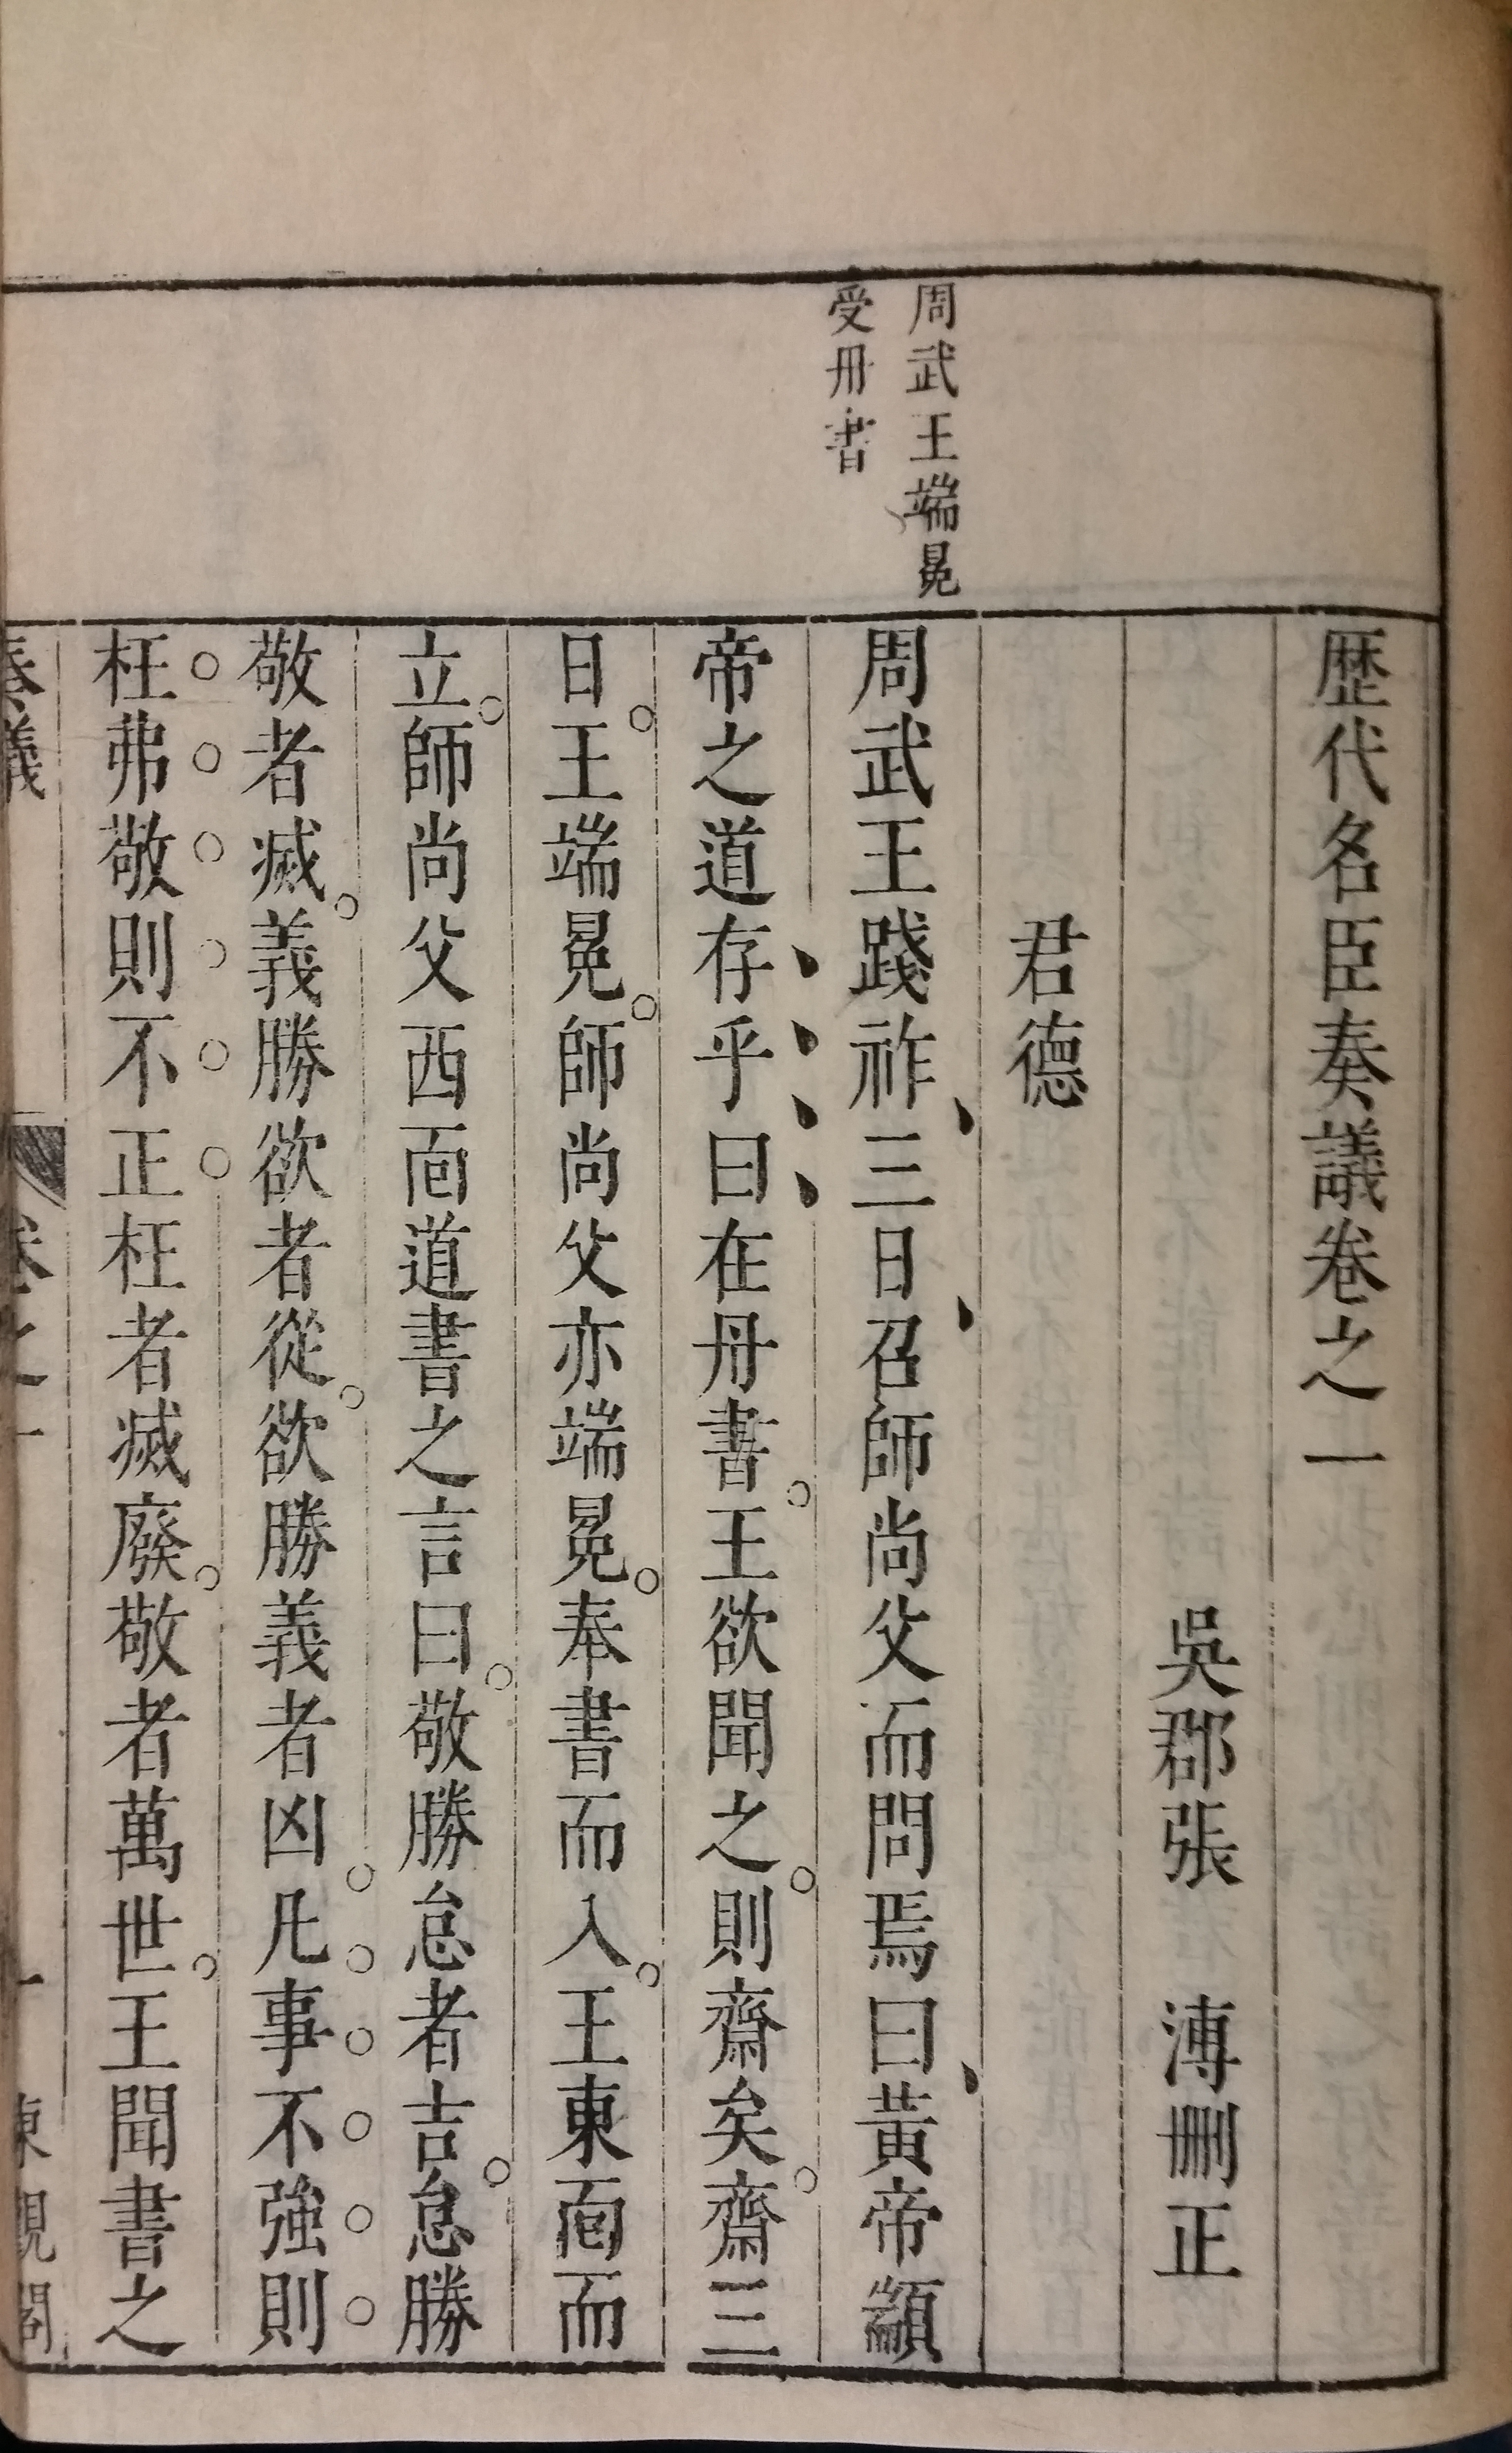 歷代名臣奏議卷之一
吳郡張溥刪正
君德
周武王端冕
受丹書
周武王踐祚三日召師尚父而問焉曰黃帝顓
帝之道存乎曰在丹書王欲聞之則齋矣齋三
日王端冕師尚父亦端冕奉書而入王東面而
立師尚父西面道書之言曰敬勝怠者吉怠勝
敬者滅義勝欲者從欲勝義者凶凡事不強則
枉弗敬則不正枉者滅廢敬者萬世王聞書之
奏議 卷之一 一 東觀閣